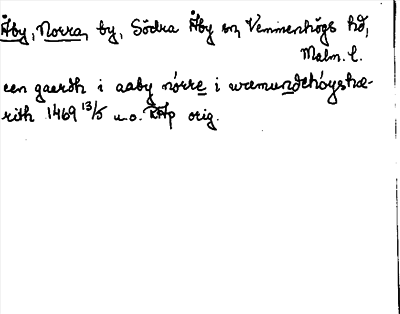 Åby, Norra, by, Södra Åby sn, Vemmenhögs hd,
Malm. l.
een gaardh i aaby nörre i wæmundehöyshæ-
rith 1469 13/5 u.o. RAp orig.